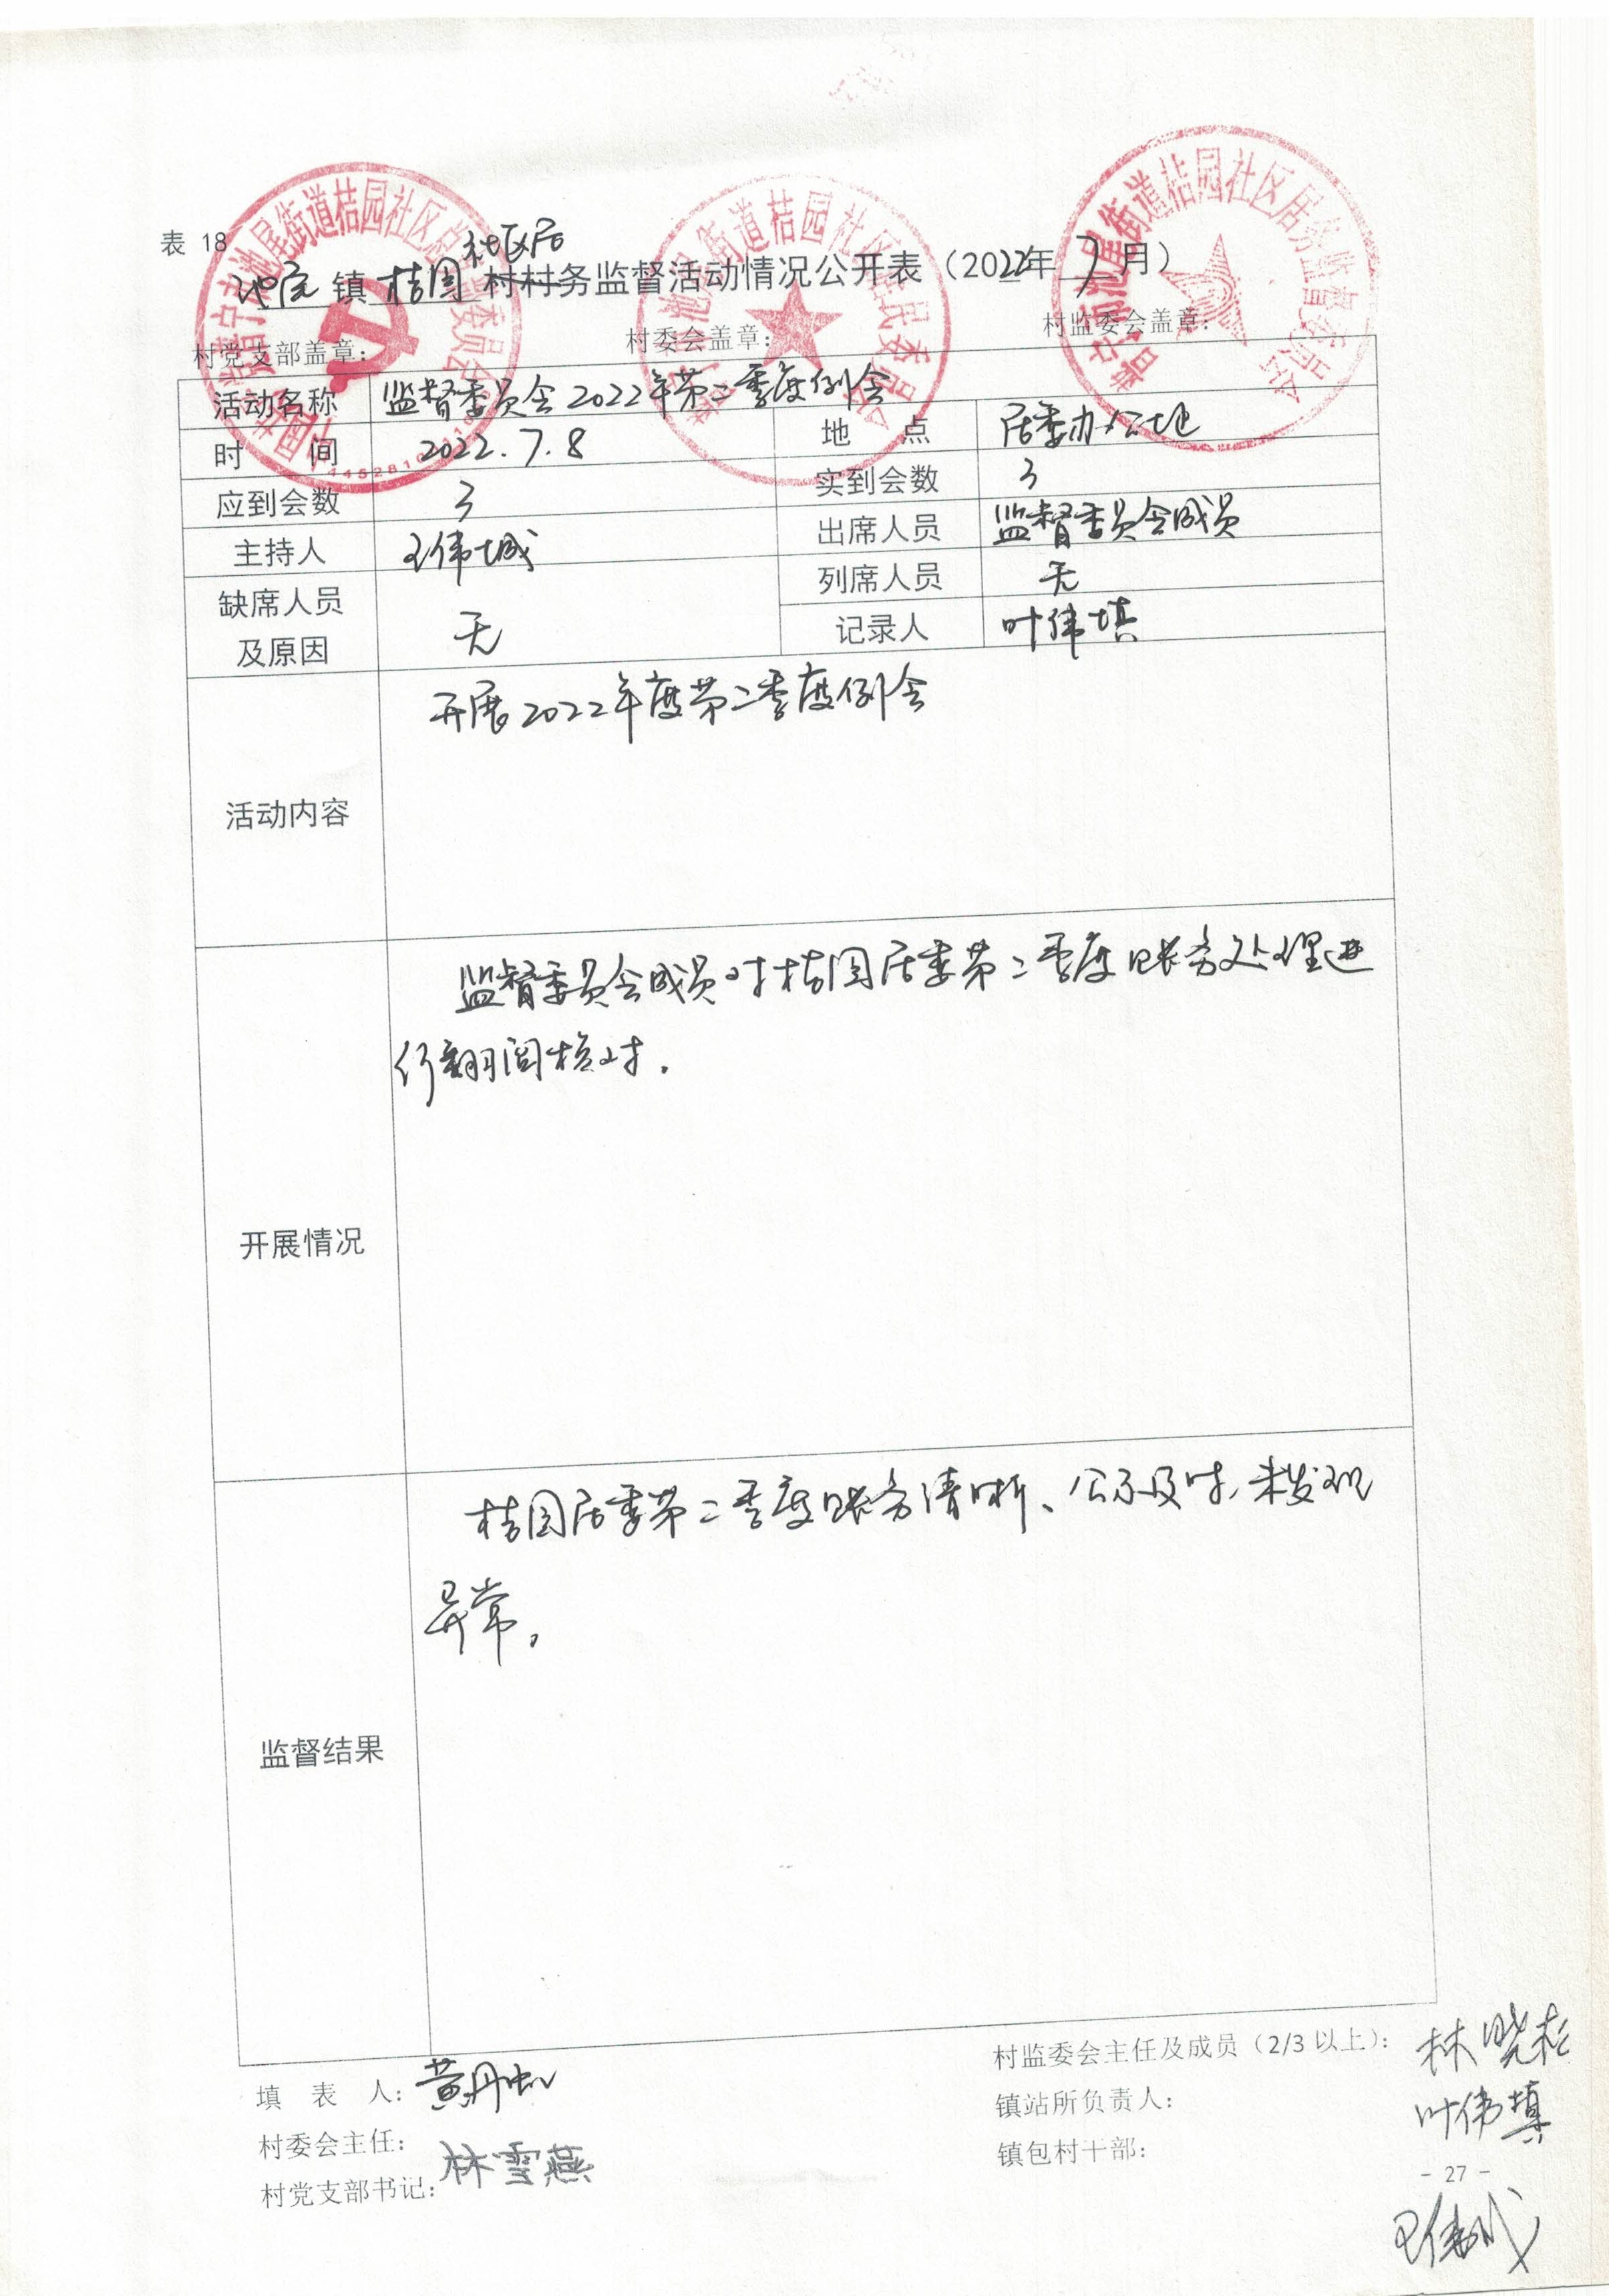 表 18
社区居
池尾镇桔园村村务监督活动情况公开表（2022年7月）
村党支部盖章：
村委会盖章：
村监委会盖章：
普宁市池尾街道桔园社区居务监督委员会
活动名称 监督委员会2022年第二季度例会
时 间 2022.7.8 地 点 居委办公地
应到会数 3 实到会数 3
主持人 王伟城 出席人员 监督委员会成员
缺席人员及原因 无 列席人员 无
记录人 叶伟填
活动内容 开展2022年度第二季度例会
开展情况 监督委员会成员对桔园居委第二季度账务处理进
行翻阅核对.
监督结果 桔园居委第二季度账务清晰、公示及时,未发现
异常。
填 表 人： 黄丹虹
村委会主任：
村党支部书记： 林雪燕
村监委会主任及成员（2/3 以上）： 林晓彬
叶伟填
镇站所负责人：
镇包村干部：
- 27 -
王伟城